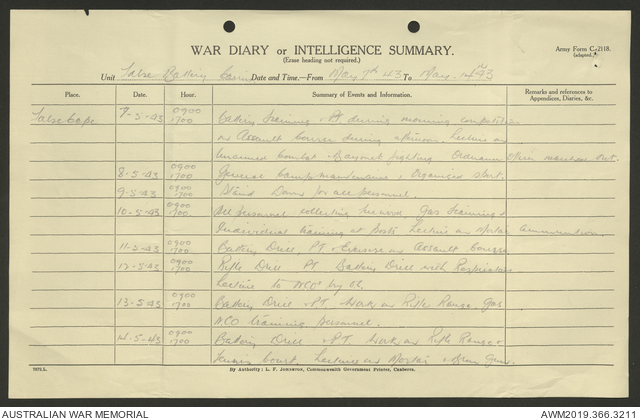 WAR DIARY or INTELLIGENCE SUMMARY.
(Erase heading not required.)
Army Form C.2118.
(adapted.)
Unit False Battery Date and Time.—From May 7th 43 To May 14th 43
Place. Date. Hour. Summary of Events and Information. Remarks and references to Appendices, Diaries, &c.
False Cape 7-5-43 0900 1700 Battery Training & PT during morning
on Assault Course during afternoon. Lecture on
unarmed combat & Bayonet fighting Officer marches out.
8-5-43 0900 1700 General Camp maintenance & Organised Sport.
9-5-43 Stand Down for all personnel.
10-5-43 0900 1700 All personnel collecting Gas Training &
Individual training at Posts Lecture on Mortar Ammunition.
11-5-43 0900 1700 Battery Drill, PT & Exercise on Assault Course
12-5-43 0900 1700 Rifle Drill PT Battery Drill with Respirators
Lecture to NCO's by
13-5-43 0900 1700 Battery Drill & PT Work on Rifle Range Gas
NCO training personnel.
14-5-43 0900 1700 Battery Drill & PT Work on Rifle Range &
Court. Lectures on Mortar & Bren Gun.
7872.L. By Authority: L. F. Johnston, Commonwealth Government Printer, Canberra.
AUSTRALIAN WAR MEMORIAL AWM2019.366.3211